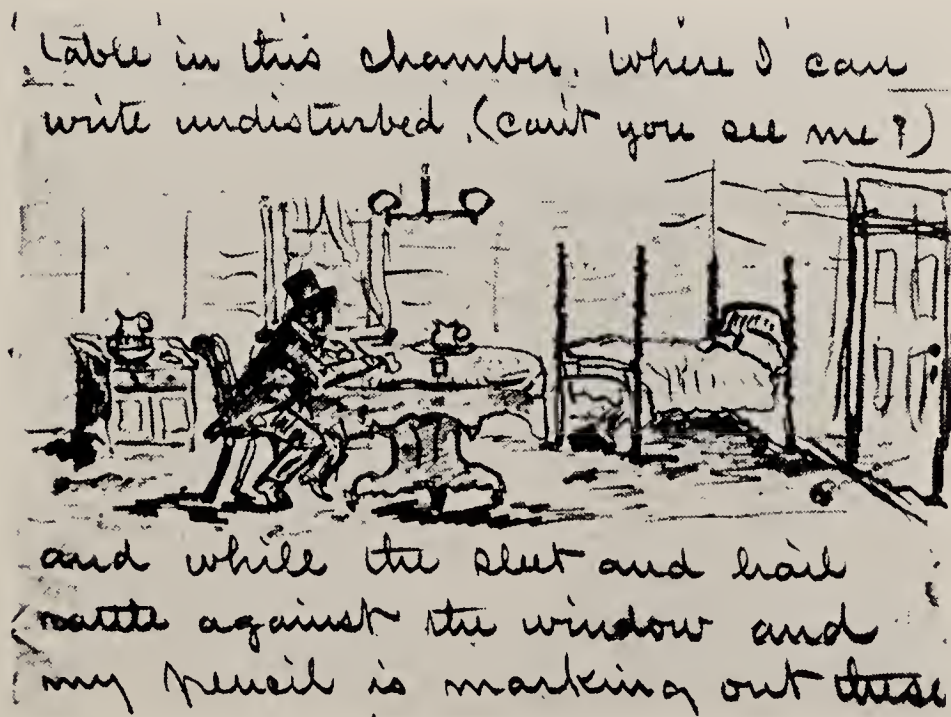 table in this chamber, where I can
write undisturbed, (can't you see me?)
and while the sleet and hail
rattle against the window and
my pencil is marking out these